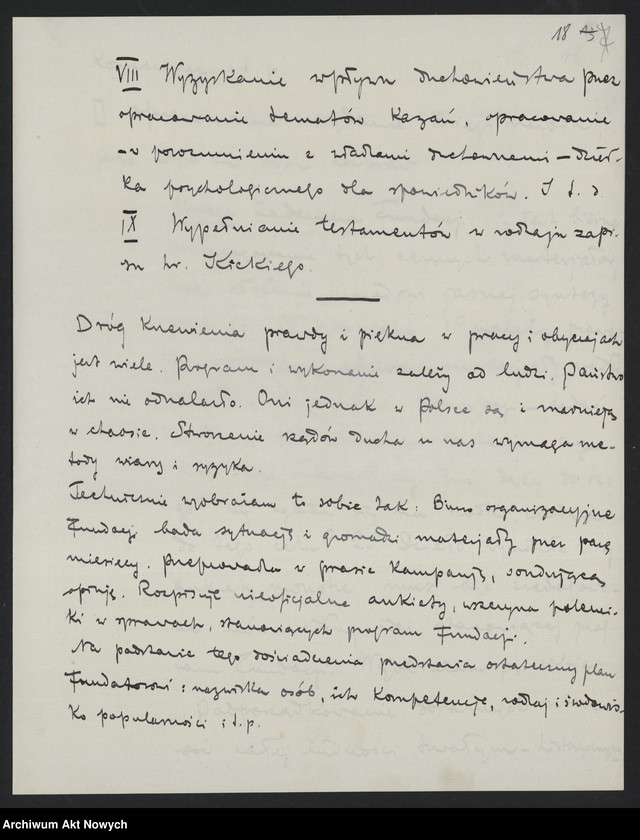 18
VIII Wyzyskanie wpływu duchowieństwa przez
opracowanie tematów kazań, opracowanie
– w porozumieniu z władzami duchownemi – dzieł-
ka psychologicznego dla spowiedników. I t. d.
IX Wypełnianie testamentów w rodzaju zapi-
su hr. Kickiego.
Dróg krzewienia prawdy i piękna w pracy i obyczajach
jest wiele. Program i wykonanie zależy od ludzi. Państwo
ich nie odnalazło. Oni jednak w Polsce są i marnieją
w chaosie. Stworzenie rządów ducha u nas wymaga me-
tody wiary i ryzyka.
Technicznie wyobrażam to sobie tak: Biuro organizacyjne
Fundacji bada sytuację i gromadzi materjały przez parę
miesięcy. Przeprowadza w prasie kampanję, sondującą
opinję. Rozpisuje nieoficjalne ankiety, wszczyna polemi-
ki w sprawach, stanowiących program Fundacji.
Na podstawie tego doświadczenia przedstawia ostateczny plan
Fundatorowi: nazwiska osób, ich kompetencje, rodzaj i środowis-
ko popularności i t.p.
Archiwum Akt Nowych